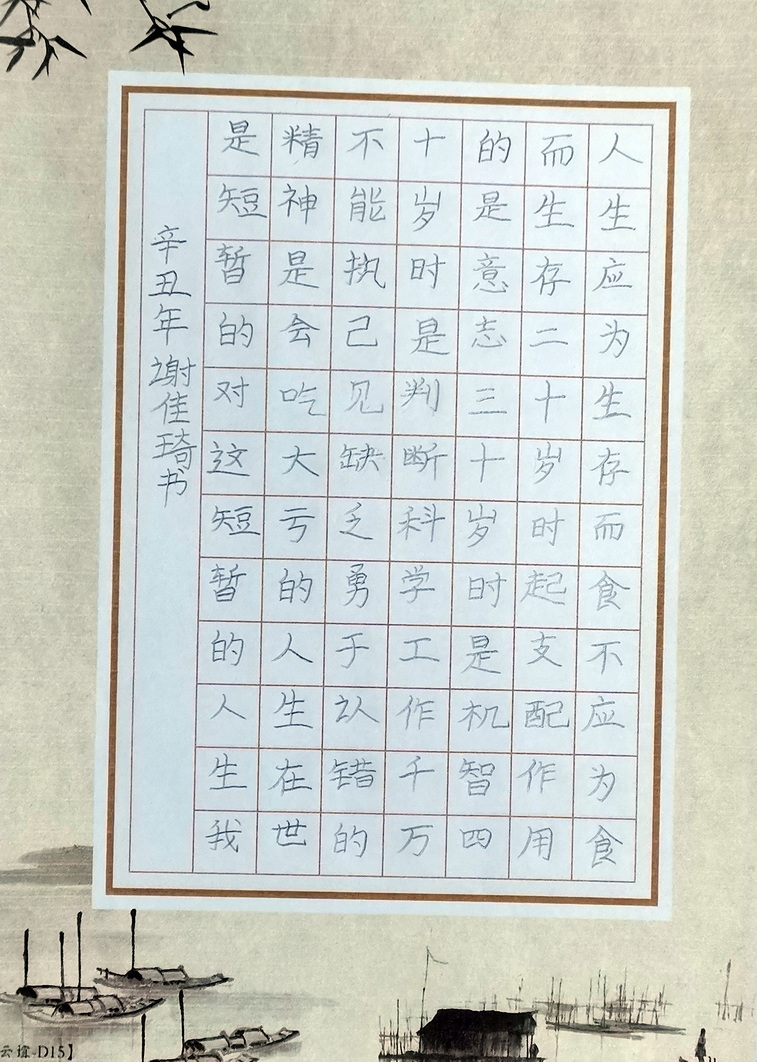 人生应为生存而食不应为食
而生存二十岁时起支配作用
的是意志三十岁时是机智四
十岁时是判断科学工作千万
不能执己见缺乏勇于认错的
精神是会吃大亏的人生在世
是短暂的对这短暂的人生我
辛丑年谢佳琦书
云谊-D15】